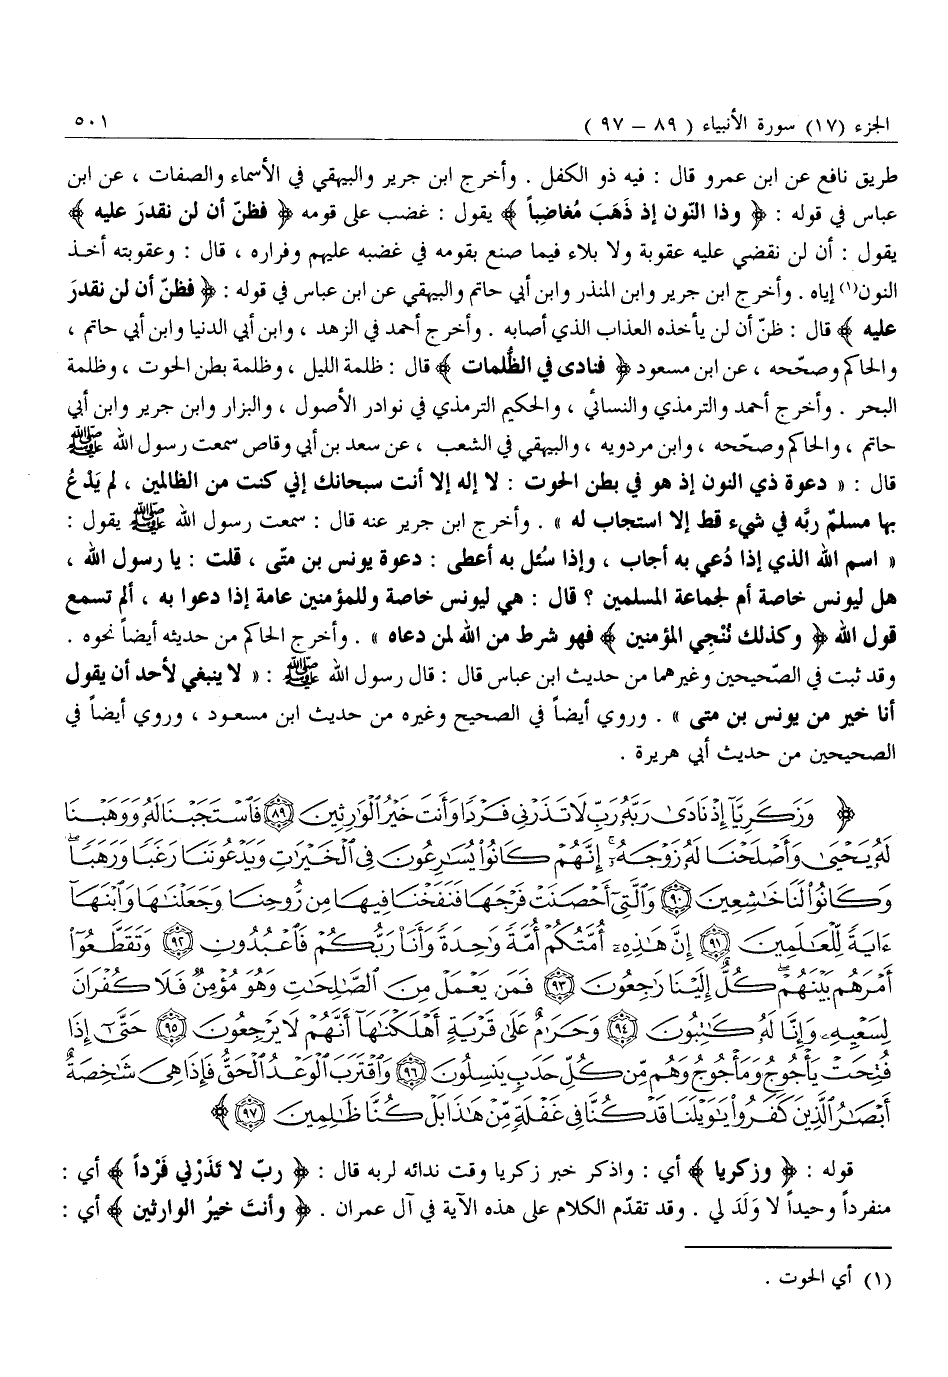 الجزء (١٧) سورة الأنبياء ( ٨٩ – ٩٧ ) ٥٠١
طريق نافع عن ابن عمرو قال : فيه ذو الكفل . وأخرج ابن جرير والبيهقي في الأسماء والصفات ، عن ابن
عباس في قوله : ﴿ وذا النّون إذ ذَهَبَ مُغاضِباً ﴾ يقول : غضب على قومه ﴿ فظنّ أن لن نقدرَ عليه ﴾
يقول : أن لن نقضي عليه عقوبة ولا بلاء فيما صنع بقومه في غضبه عليهم وفراره ، قال : وعقوبته أخذ
النون(١) إياه . وأخرج ابن جرير وابن المنذر وابن أبي حاتم والبيهقي عن ابن عباس في قوله : ﴿ فظنّ أن لن نقدرَ
عليه ﴾ قال : ظنّ أن لن يأخذه العذاب الذي أصابه . وأخرج أحمد في الزهد ، وابن أبي الدنيا وابن أبي حاتم ،
والحاكم وصحّحه ، عن ابن مسعود ﴿ فنادى في الظُّلمات ﴾ قال : ظلمة الليل ، وظلمة بطن الحوت ، وظلمة
البحر . وأخرج أحمد والترمذي والنسائي ، والحكيم الترمذي في نوادر الأصول ، والبزار وابن جرير وابن أبي
حاتم ، والحاكم وصحّحه ، وابن مردويه ، والبيهقي في الشعب ، عن سعد بن أبي وقاص سمعت رسول الله ﷺ
قال : « دعوة ذي النون إذ هو في بطن الحوت : لا إله إلا أنت سبحانك إني كنت من الظالمين ، لم يَدْعُ
بها مسلمٌ ربَّه في شيء قط إلا استجاب له » . وأخرج ابن جرير عنه قال : سمعت رسول الله ﷺ يقول :
« اسم الله الذي إذا دُعي به أجاب ، وإذا سُئل به أعطى : دعوة يونس بن متّى ، قلت : يا رسول الله ،
هل ليونس خاصة أم لجماعة المسلمين ؟ قال : هي ليونس خاصة وللمؤمنين عامة إذا دعوا به ، ألم تسمع
قول الله ﴿ وكذلك نُنْجِي المؤمنين ﴾ فهو شرط من الله لمن دعاه » . وأخرج الحاكم من حديثه أيضاً نحوه .
وقد ثبت في الصّحيحين وغيرهما من حديث ابن عباس قال : قال رسول الله ﷺ : « لا ينبغي لأحد أن يقول
أنا خير من يونس بن متى » . وروي أيضاً في الصحيح وغيره من حديث ابن مسعود ، وروي أيضاً في
الصحيحين من حديث أبي هريرة .
﴿ وَزَكَرِيَّآ إِذْ نَادَىٰ رَبَّهُۥ رَبِّ لَا تَذَرْنِي فَرْدًا وَأَنتَ خَيْرُ الْوَارِثِينَ ﴿٨٩﴾ فَاسْتَجَبْنَا لَهُۥ وَوَهَبْنَا
لَهُۥ يَحْيَىٰ وَأَصْلَحْنَا لَهُۥ زَوْجَهُۥٓ إِنَّهُمْ كَانُوا۟ يُسَارِعُونَ فِي الْخَيْرَاتِ وَيَدْعُونَنَا رَغَبًا وَرَهَبًا
وَكَانُوا۟ لَنَا خَاشِعِينَ ﴿٩٠﴾ وَالَّتِيٓ أَحْصَنَتْ فَرْجَهَا فَنَفَخْنَا فِيهَا مِن رُّوحِنَا وَجَعَلْنَاهَا وَابْنَهَآ
ءَايَةً لِّلْعَالَمِينَ ﴿٩١﴾ إِنَّ هَٰذِهِۦٓ أُمَّتُكُمْ أُمَّةً وَاحِدَةً وَأَنَا رَبُّكُمْ فَاعْبُدُونِ ﴿٩٢﴾ وَتَقَطَّعُوٓا۟
أَمْرَهُم بَيْنَهُمْ كُلٌّ إِلَيْنَا رَاجِعُونَ ﴿٩٣﴾ فَمَن يَعْمَلْ مِنَ الصَّالِحَاتِ وَهُوَ مُؤْمِنٌ فَلَا كُفْرَانَ
لِسَعْيِهِۦ وَإِنَّا لَهُۥ كَاتِبُونَ ﴿٩٤﴾ وَحَرَامٌ عَلَىٰ قَرْيَةٍ أَهْلَكْنَاهَآ أَنَّهُمْ لَا يَرْجِعُونَ ﴿٩٥﴾ حَتَّىٰٓ إِذَا
فُتِحَتْ يَأْجُوجُ وَمَأْجُوجُ وَهُم مِّن كُلِّ حَدَبٍ يَنسِلُونَ ﴿٩٦﴾ وَاقْتَرَبَ الْوَعْدُ الْحَقُّ فَإِذَا هِيَ شَاخِصَةٌ
أَبْصَارُ الَّذِينَ كَفَرُوا۟ يَاوَيْلَنَا قَدْ كُنَّا فِي غَفْلَةٍ مِّنْ هَٰذَا بَلْ كُنَّا ظَالِمِينَ ﴿٩٧﴾ ﴾
قوله : ﴿ وزكريا ﴾ أي : واذكر خبر زكريا وقت ندائه لربه قال : ﴿ ربّ لا تَذَرْني فَرْداً ﴾ أي :
منفرداً وحيداً لا وَلَدَ لي . وقد تقدّم الكلام على هذه الآية في آل عمران . ﴿ وأنتَ خيرُ الوارثين ﴾ أي :
(١) أي الحوت .